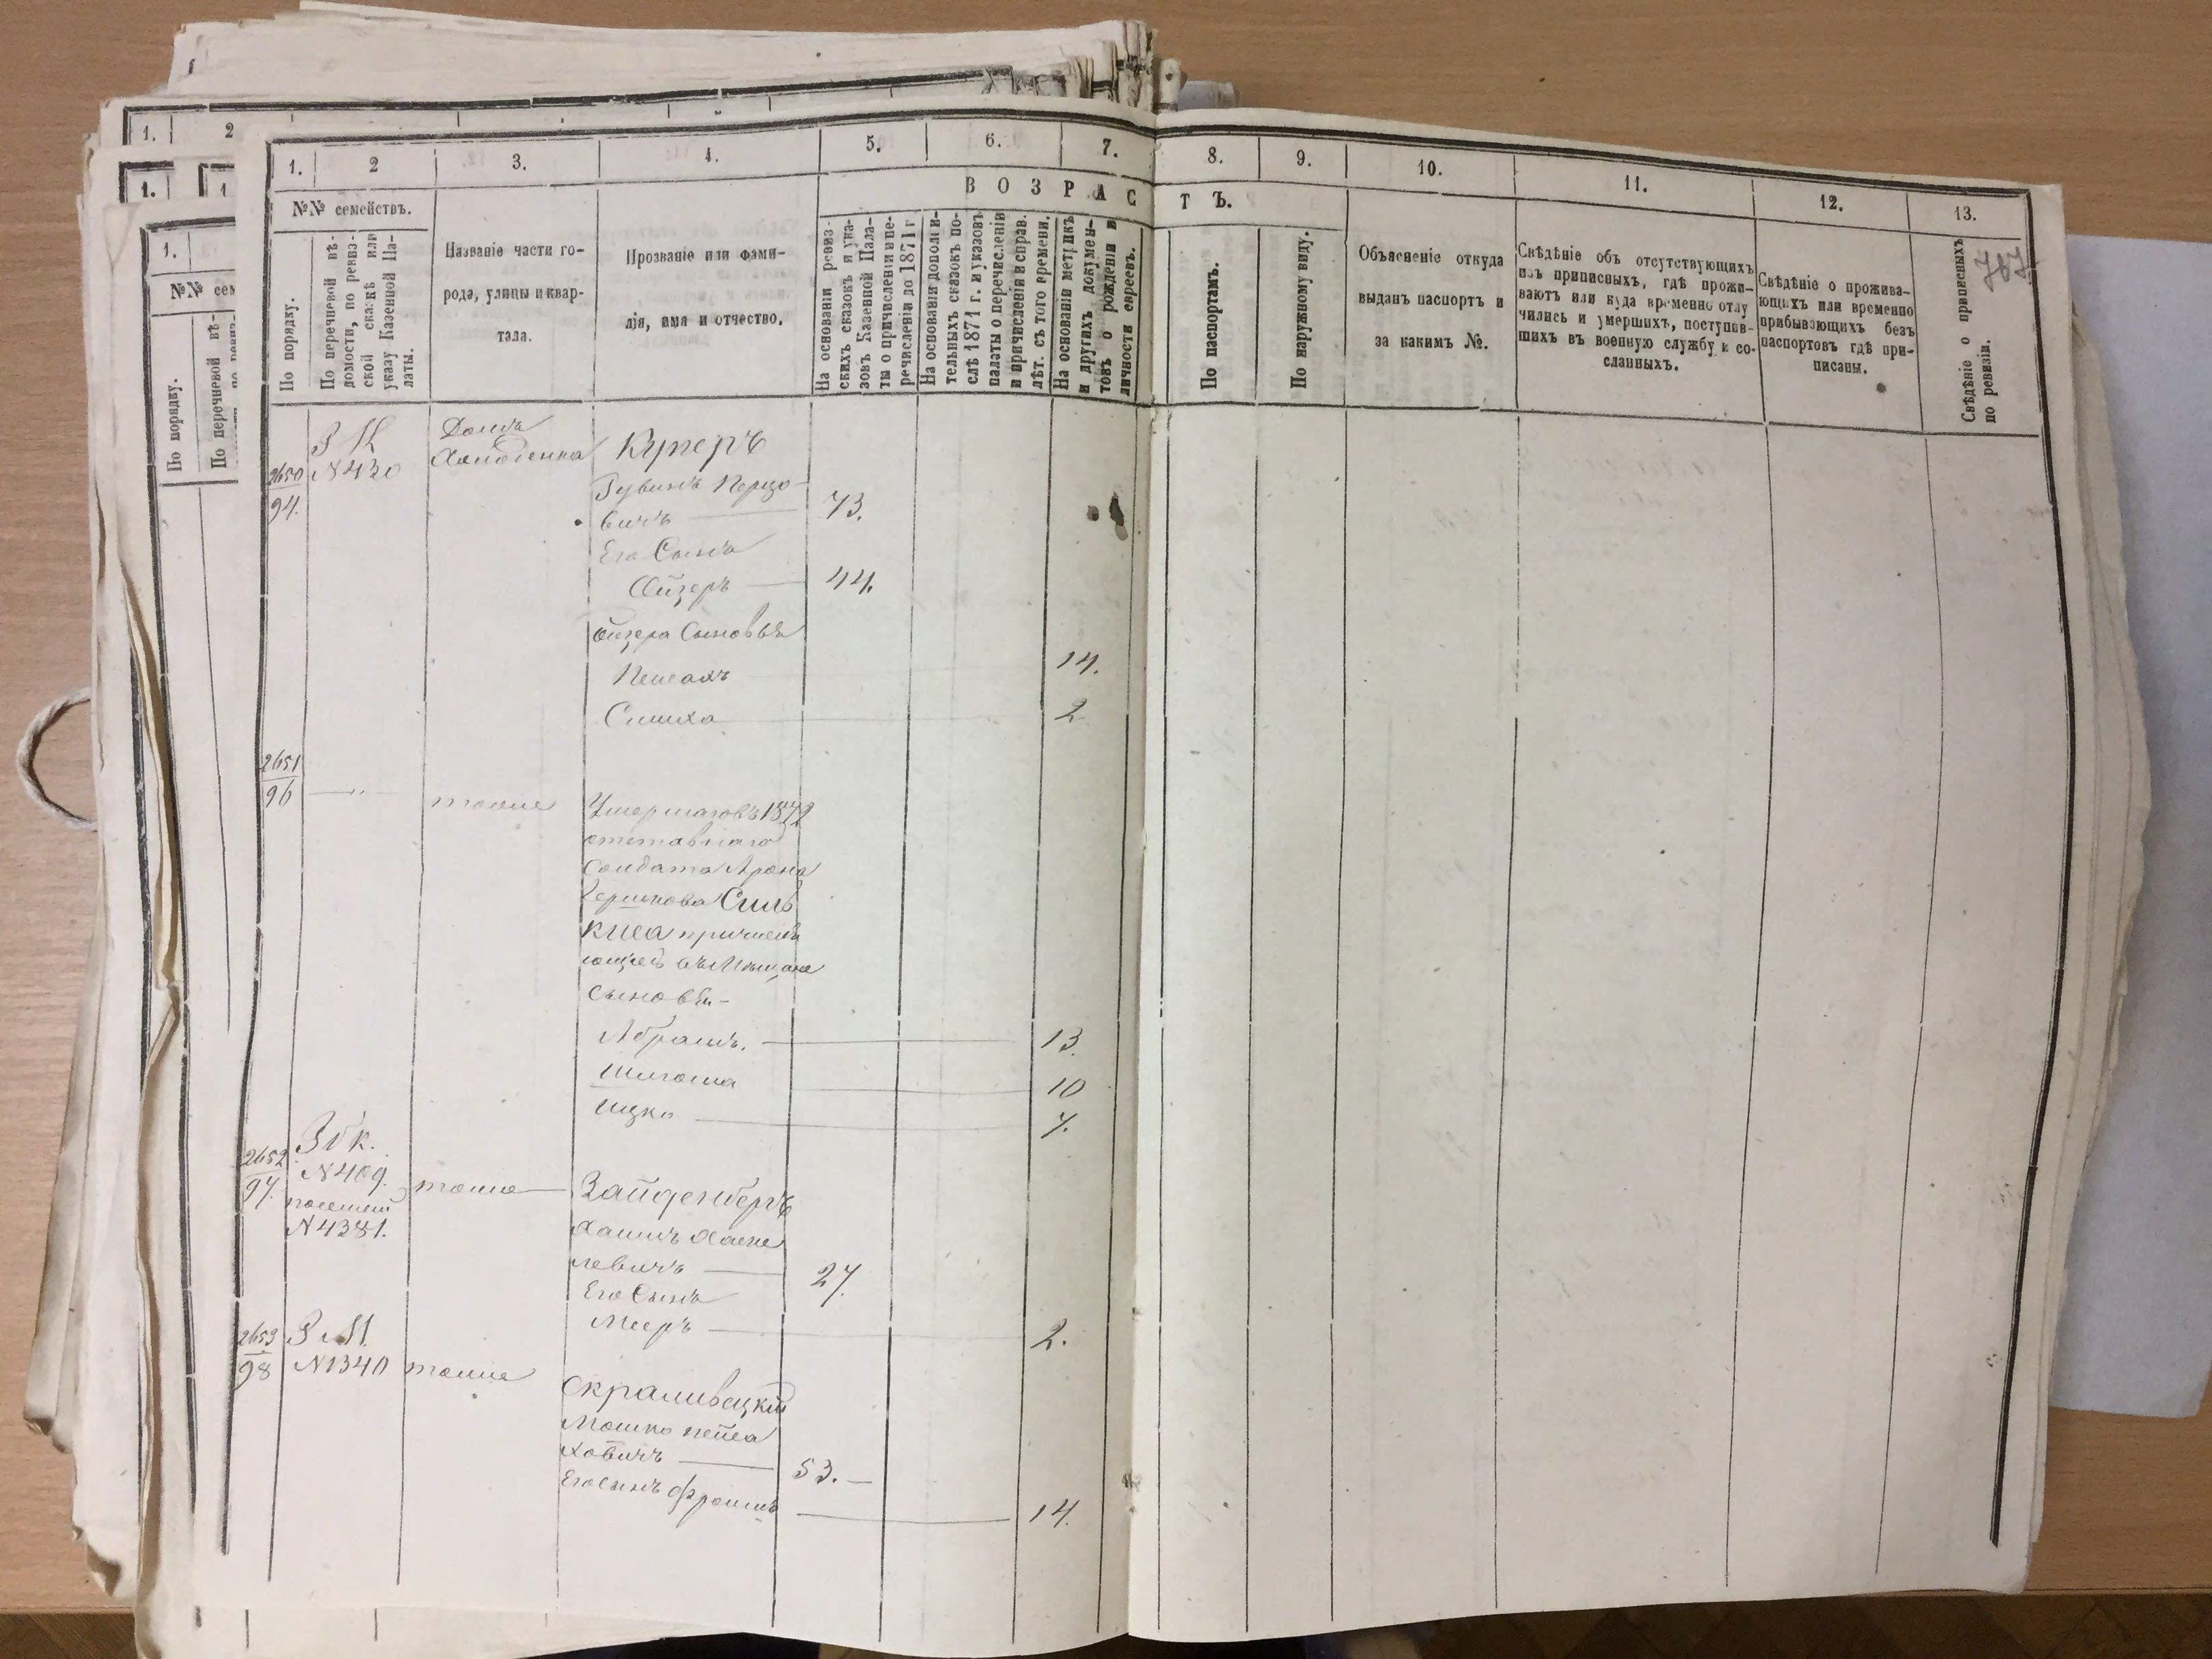 1. 2
1.
1. 1
1.
№№ сем
По порядку.
По перечневой вѣ-
1. 2 3. 4. 5. 6. 7. 8. 9. 10. 11. 12. 13.
№№ семействъ.
По порядку.
По перечневой вѣ-
домости, по ревиз-
ской сказкѣ или
указу Казенной Па-
латы.
Названіе части го-
рода, улицы и квар-
тала.
Прозваніе или фами-
лія, имя и отчество.
ВОЗРАСТЪ.
На основаніи ревиз-
скихъ сказокъ и ука-
зовъ Казенной Пала-
ты о причисленіи и пе-
речисленіи до 1871 г
На основаніи дополни-
тельныхъ сказокъ по-
слѣ 1871 г. и указовъ
палаты о перечисленіи
и причисленіи и справ.
лѣт. съ того времени.
На основаніи метрикъ
и другихъ докумен-
товъ о рожденіи и
личности евреевъ.
По паспортамъ.
По наружному виду.
Объясненіе откуда
выданъ паспортъ и
за какимъ №.
Свѣдѣніе объ отсутствующихъ
изъ приписныхъ, гдѣ прожи-
ваютъ или куда временно отлу
чились и умершихъ, поступив-
шихъ въ военную службу и со-
сланныхъ.
Свѣдѣніе о прожива-
ющихъ или временно
прибывающихъ безъ
паспортовъ гдѣ при-
писаны.
Свѣдѣніе о приписныхъ
по ревизіи.
787
2650
94.
З М
N 430
Домъ
Холоденка
Куперъ
Рувинъ Перцо-
вичъ 73.
Его Сынъ
Ойзеръ 44.
Ойзера Сыновья
Пейсахъ 14.
Симха 2
2651
96
— " —
тоже
Умершаго въ 1872
отставнаго
Солдата Арона
Гершкова Силь
киса
сыновья-
Абрамъ. 13.
Шлёма 10
Ицко 7.
2652
97.
N 409.
N 4381.
тоже
Зайденбергъ
Хаимъ Хаске
левичъ 27.
Его Сынъ
Мееръ 2.
2653
98
З М.
N 1340
тоже
Скраливецкій
Мошко Пейса
ховичъ 53. —
Его сынъ Фроимъ 14.